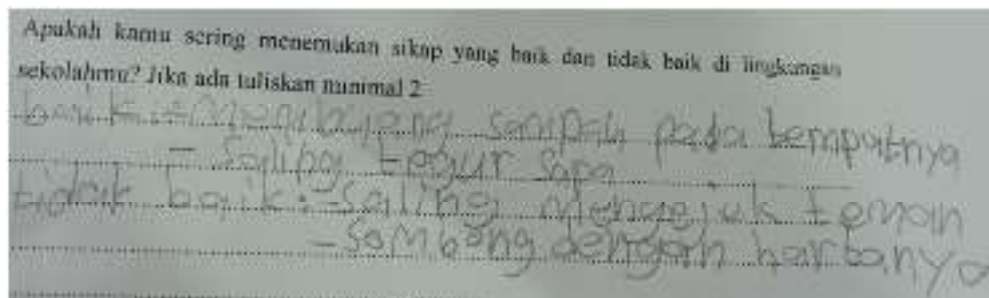 Apakah kamu sering menemukan sikap yang baik dan tidak baik di lingkungan
sekolahmu? Jika ada tuliskan minimal 2
baik : - Membuang sampah pada tempatnya
- Saling tegur sapa
tidak baik : - saling mengejek teman
- sombong dengan hartanya